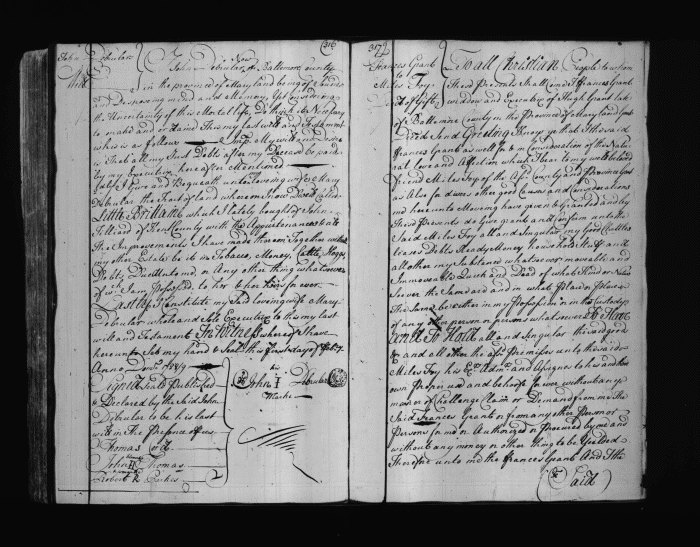 316
John Debular
Will
Now
John Debular of Baltimore County
in the province of Maryland being of Sound
& Disposing mind and Memory, but Considering
the Uncertainty of this Mortal life, Do think it Necessary
to make and ordaine This my last will and Testament
who is as follow Imp. My will and Desire
is that all my Just Debts after my Decease be paid
by my Executrix hereafter Mentioned
I give and Bequeath unto Loveing wife Mary
Debular the Tract of land whereon I Now Dwell Called
Little Brittaine which I lately bought of John
of Kent County with the Appurtenances &
the Improvements I have made thereon Together with all
my other Estate be it in Tobacco, Money, Cattle, Hoggs,
Debts Due unto me or Any other thing whatsoever
of wch I am Possessed to her & her for ever
Lastly I Constitute my Said loveing wife Mary
Debular whole and Sole Executrix to this my last
will and Testament In Witness whereof I have
hereunto Set my hand & Seal this first day of
Anno
Signed Sealed Published
& Declared by the Said John
Debular to be his last
will in the Presence of us
Thomas
John Thomas
Robert R Parker
his
John I Debular
Marke
317
Frances Grant
to
Miles Foy
Deed of Gift
To all Christian People to whom
These Presents Shall Come I Frances Grant
widdow and Executrix of Hugh Grant late
of Baltimore County in the Province of Maryland Gent
Decd Send Greeting Know ye that I the said
Frances Grant as well for & in Consideration of the Natu
ral love and Affection which I bear to my well beloved
friend Miles Foy of the Afd. County and Province Gent
as Also for divers other good Causes and Considerations
me hereunto Moveing have given & granted and by
These presents do Give grant and Confirm unto the
Said Miles Foy all and Singular my Goods Chattles
Leases Debts Ready Money household Stuff and
all other my Substance whatsoever moveable and
Immoveable Quick and Dead of what Kind or Nature
Soever the Same are and in what Place or Places
The Same be either in my Possession or in the Custody
of any other person or persons whatsoever To Have
and To Hold all and Singular the said goods
& and all other the Afd. Premises unto the said
Miles Foy his Exrs Admrs and Assignes to his and their
own Proper use and behoofe for ever without any
maner of Challenge Claim or Demand from me the
Said Frances Grant or from any other Person or
Persons for me or Authorized or Procured by me and
without any money or other thing to be Yeilded
Therefore unto me the Frances Grant And I the
Said